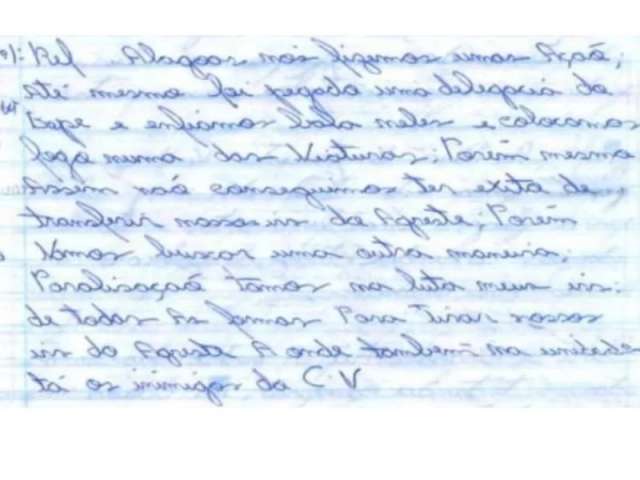 Ref Alagoas nois fizemos umas Ação,
Até mesmo foi pegado uma delegacia da
Bope e enfiamos bala neles e colocamos
fogo numa das Viaturas; Porém mesmo
Assim não conseguimos ter exito de
transferir nossos irs do Agreste; Porém
Vamos buscar uma outra maneira;
Paralisação tamos na luta meus irs:
de todas As formas Para Tirar nossos
irs do Agreste A onde também na unidade
tá os inimigos do C.V